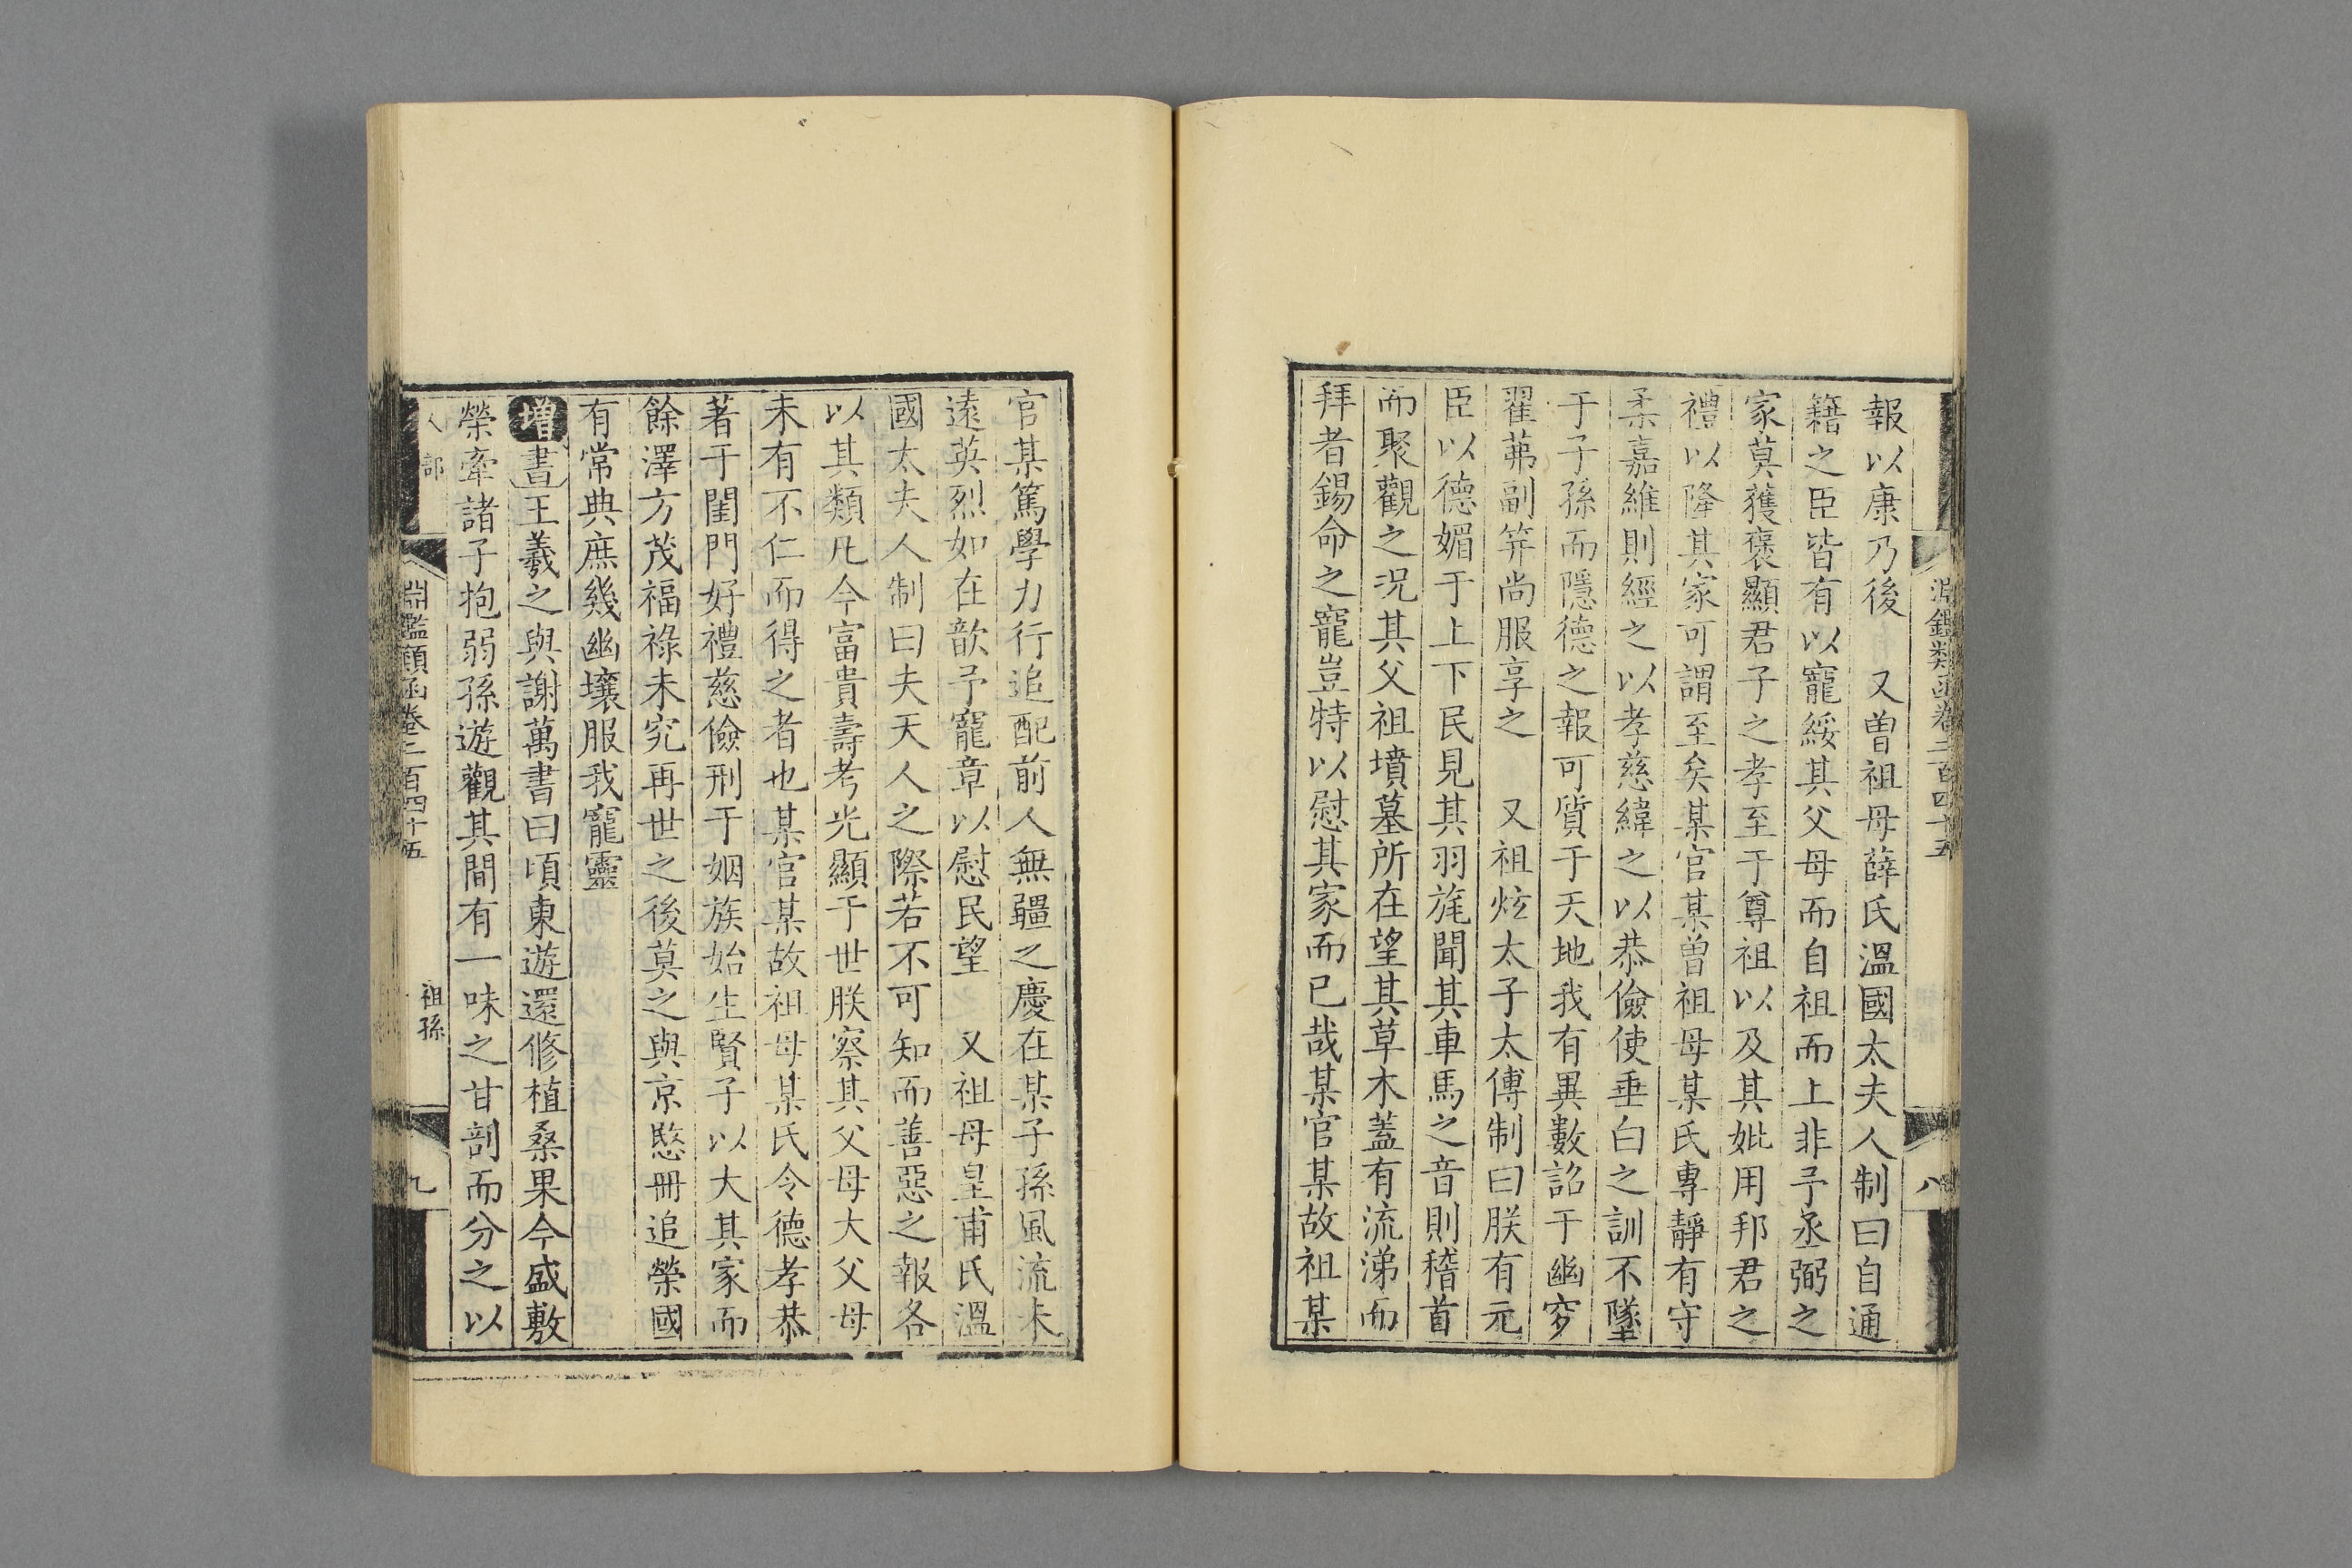 淵鑑類函卷二百四十五
八
報以康乃後　又曽祖母薛氏溫國太夫人制曰自通
籍之臣皆有以寵綏其父母而自祖而上非予丞弼之
家莫獲褒顯君子之孝至于尊祖以及其妣用邦君之
禮以降其家可謂至矣某官某曽祖母某氏專靜有守
柔嘉維則經之以孝慈緯之以恭儉使垂白之訓不墜
于子孫而隱德之報可質于天地我有異數詔于幽穸
翟茀副笄尚服享之　又祖炫太子太傅制曰朕有元
臣以德媚于上下民見其羽旄聞其車馬之音則稽首
而聚觀之况其父祖墳墓所在望其草木蓋有流涕而
拜者錫命之寵豈特以慰其家而已哉某官某故祖某
官某篤學力行追配前人無疆之慶在某子孫風流未
遠英烈如在歆予寵章以慰民望　又祖母皇甫氏溫
國太夫人制曰夫天人之際若不可知而善惡之報各
以其類凡今富貴壽考光顯于世朕察其父母大父母
未有不仁而得之者也某官某故祖母某氏令德孝恭
著于閨門好禮慈儉刑于姻族始生賢子以大其家而
餘澤方茂福祿未究再世之後莫之與京愍冊追榮國
有常典庶幾幽壤服我寵靈
增書王羲之與謝萬書曰頃東遊還修植桑果今盛敷
榮牽諸子抱弱孫遊觀其間有一味之甘剖而分之以
人部
淵鑑類函卷二百四十五
祖孫
九